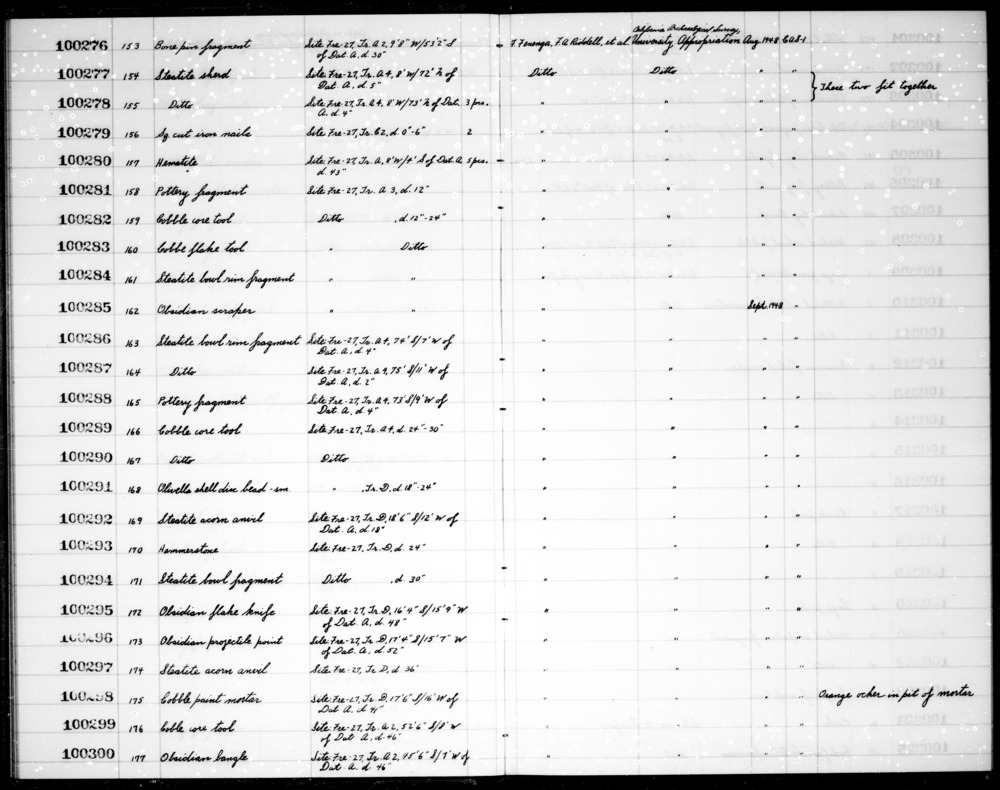 California Archaeological Survey,
100276 153 Bone pin fragment Site Fre-27, Tr. A 2, 9'8" W/53'2" S F. Fenenga, F.A. Riddell, et al. University Appropriation Aug. 1948 CAS-1
of Dat. A, d. 30"
100277 154 Steatite sherd Site Fre-27, Tr. A 4, 8' W/72' N of Ditto Ditto " "
Dat. A, d. 5" } These two fit together
100278 155 Ditto Site Fre-27, Tr. A 4, 8' W/73' N of Dat. 3 pcs. " " " "
A. d. 4"
100279 156 Sq cut iron nails Site Fre-27, Tr. C2, d 0"-6" 2 " " " "
100280 157 Hematite Site Fre-27, Tr. A, 8' W/4' S of Dat. A 5 pcs. " " " "
d. 43"
100281 158 Pottery fragment Site Fre-27, Tr. A 3, d. 12" " " " "
100282 159 Cobble core tool Ditto , d. 12"-24" " " " "
100283 160 Cobbe flake tool " Ditto " " " "
100284 161 Steatite bowl rim fragment " " " " " "
100285 162 Obsidian scraper " " " " Sept. 1948 "
100286 163 Steatite bowl rim fragment Site Fre-27, Tr. A 4, 74' S/7' W of " " " "
Dat. A, d. 4"
100287 164 Ditto Site Fre-27, Tr. A 4, 75' S/11' W of " " " "
Dat. A, d. 2"
100288 165 Pottery fragment Site Fre-27, Tr. A 4, 73' S/9' W of " " " "
Dat. A, d. 4"
100289 166 Cobble core tool Site Fre-27, Tr. A 4, d. 24"-30" " " " "
100290 167 Ditto Ditto " " " "
100291 168 Olivella shell disc bead - sm. " , Tr. D, d 18"-24" " " " "
100292 169 Steatite acorn anvil Site Fre-27, Tr. D, 18'6" S/12' W of " " " "
Dat. A, d 18"
100293 170 Hammerstone Site Fre-27, Tr. D, d. 24" " " " "
100294 171 Steatite bowl fragment Ditto , d. 30" " " " "
100295 172 Obsidian flake knife Site Fre-27, Tr. D, 16'4" S/15'9" W " " " "
of Dat. A, d. 48"
100296 173 Obsidian projectile point Site Fre-27, Tr. D, 17'4" S/15'7" W " " " "
of Dat. A, d. 52"
100297 174 Steatite acorn anvil Site Fre-27, Tr. D, d 36" " " " "
100298 175 Cobble paint mortar Site Fre-27, Tr. D, 17'6" S/16' W of " " " " Orange ocher in pit of mortar
Dat A. d. 41"
100299 176 Coble core tool Site Fre-27, Tr. A 2, 52'6" S/8' W " " " "
of Dat. A, d. 46"
100300 177 Obsidian bangle Site Fre-27, Tr. A 2, 45'6" S/7' W of " " " "
Dat. A. d. 46"